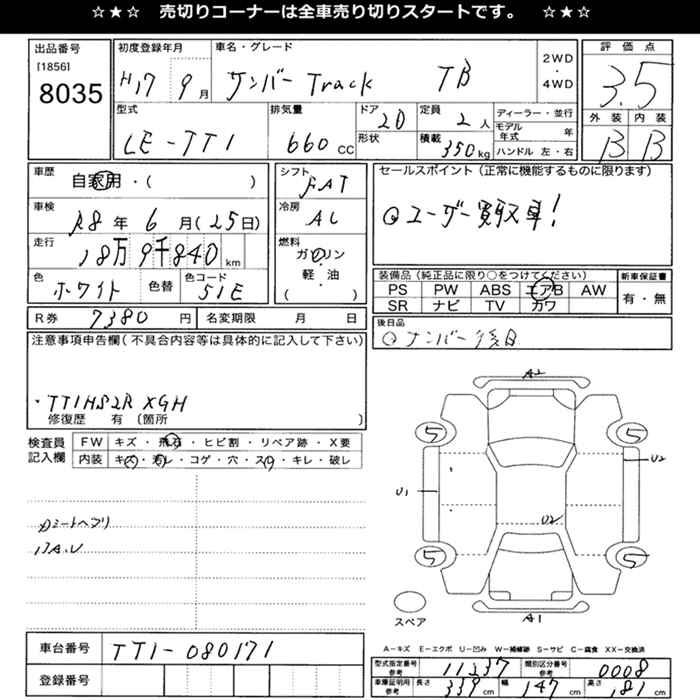 ☆★☆ 売切りコーナーは全車売り切りスタートです。 ☆★☆
出品番号
[1856]
8035
初度登録年月
H17 9月
車名・グレード
サンバー Track TB
2WD
・
4WD
評価点
3.5
外装 内装
B B
型式
LE-TT1
排気量
660 CC
ドア
2D
形状
定員
2人
積載
350kg
ディーラー・並行
モデル年式 年
ハンドル 左・右
車歴
自家用・( )
車検
R8年 6月(25日)
走行
18万9千840 km
色
ホワイト
色替
色コード
51E
シフト
FAT
冷房
AC
燃料
ガソリン
軽・油
( )
セールスポイント(正常に機能するものに限ります)
◎ユーザー買取車!
装備品(純正品に限り○をつけてください)
PS PW ABS エアB AW
SR ナビ TV カワ
新車保証書
有・無
R券 7380円
名変期限 月 日
後日品
◎サンバー後日
注意事項申告欄(不具合内容等は具体的に記入して下さい)
・TT1HS2R XGH
修復歴 有 〔箇所 〕
検査員
記入欄
FW キズ・飛石・ヒビ割・リペア跡・X要
内装 キズ・汚れ・コゲ・穴・スレ・キレ・破レ
A2
5 5
U2
U1
U2
5 5
A1
スペア
A-キズ E-エクボ U-凹み W-補修跡 S-サビ C-腐食 XX-交換済
車台番号 TT1-080171
登録番号
型式指定番号 参考 11237
類別区分番号 参考 0008
車庫証明用 参考 長さ 339 cm 幅 147 cm 高さ 181 cm